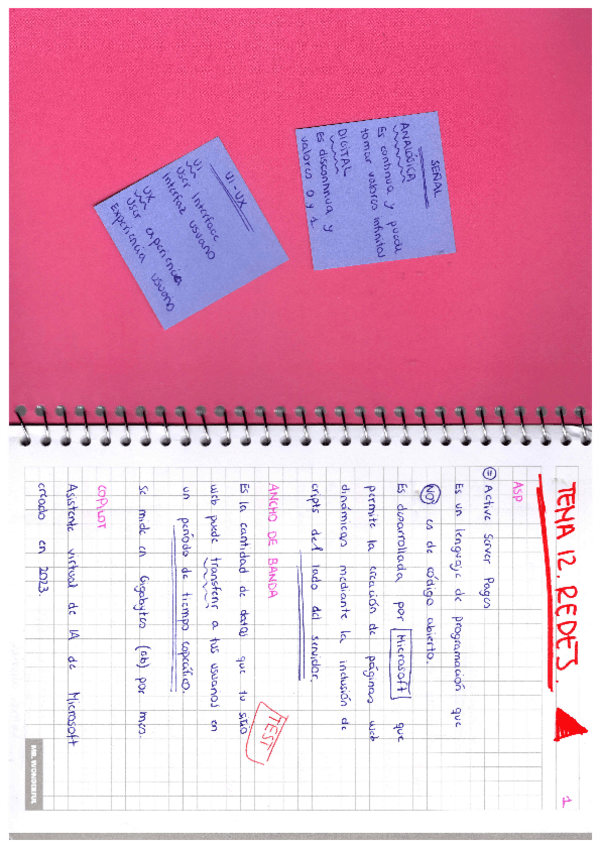 SEÑAL
ANALÓGICA
Es continua y puede
tomar valores infinitos
DIGITAL
Es discontinua y
valores 0 y 1
UI-UX
UI
User Interface
Interfaz usuario
UX
User experiencia
Experiencia usuario
TEMA 12. REDES.
1
ASP
= Active Server Pages
Es un lenguaje de programación que
NO es de código abierto.
Es desarrollada por Microsoft que
permite la creación de páginas web
dinámicas mediante la inclusión de
cripts del lado del servidor.
ANCHO DE BANDA
TEST
Es la cantidad de datos que tu sitio
web puede transferir a tus usuarios en
un período de tiempo específico.
Se mide en Gigabytes (Gb) por mes.
COPILOT
Asistente virtual de IA de Microsoft
creado en 2023.
MR. WONDERFUL